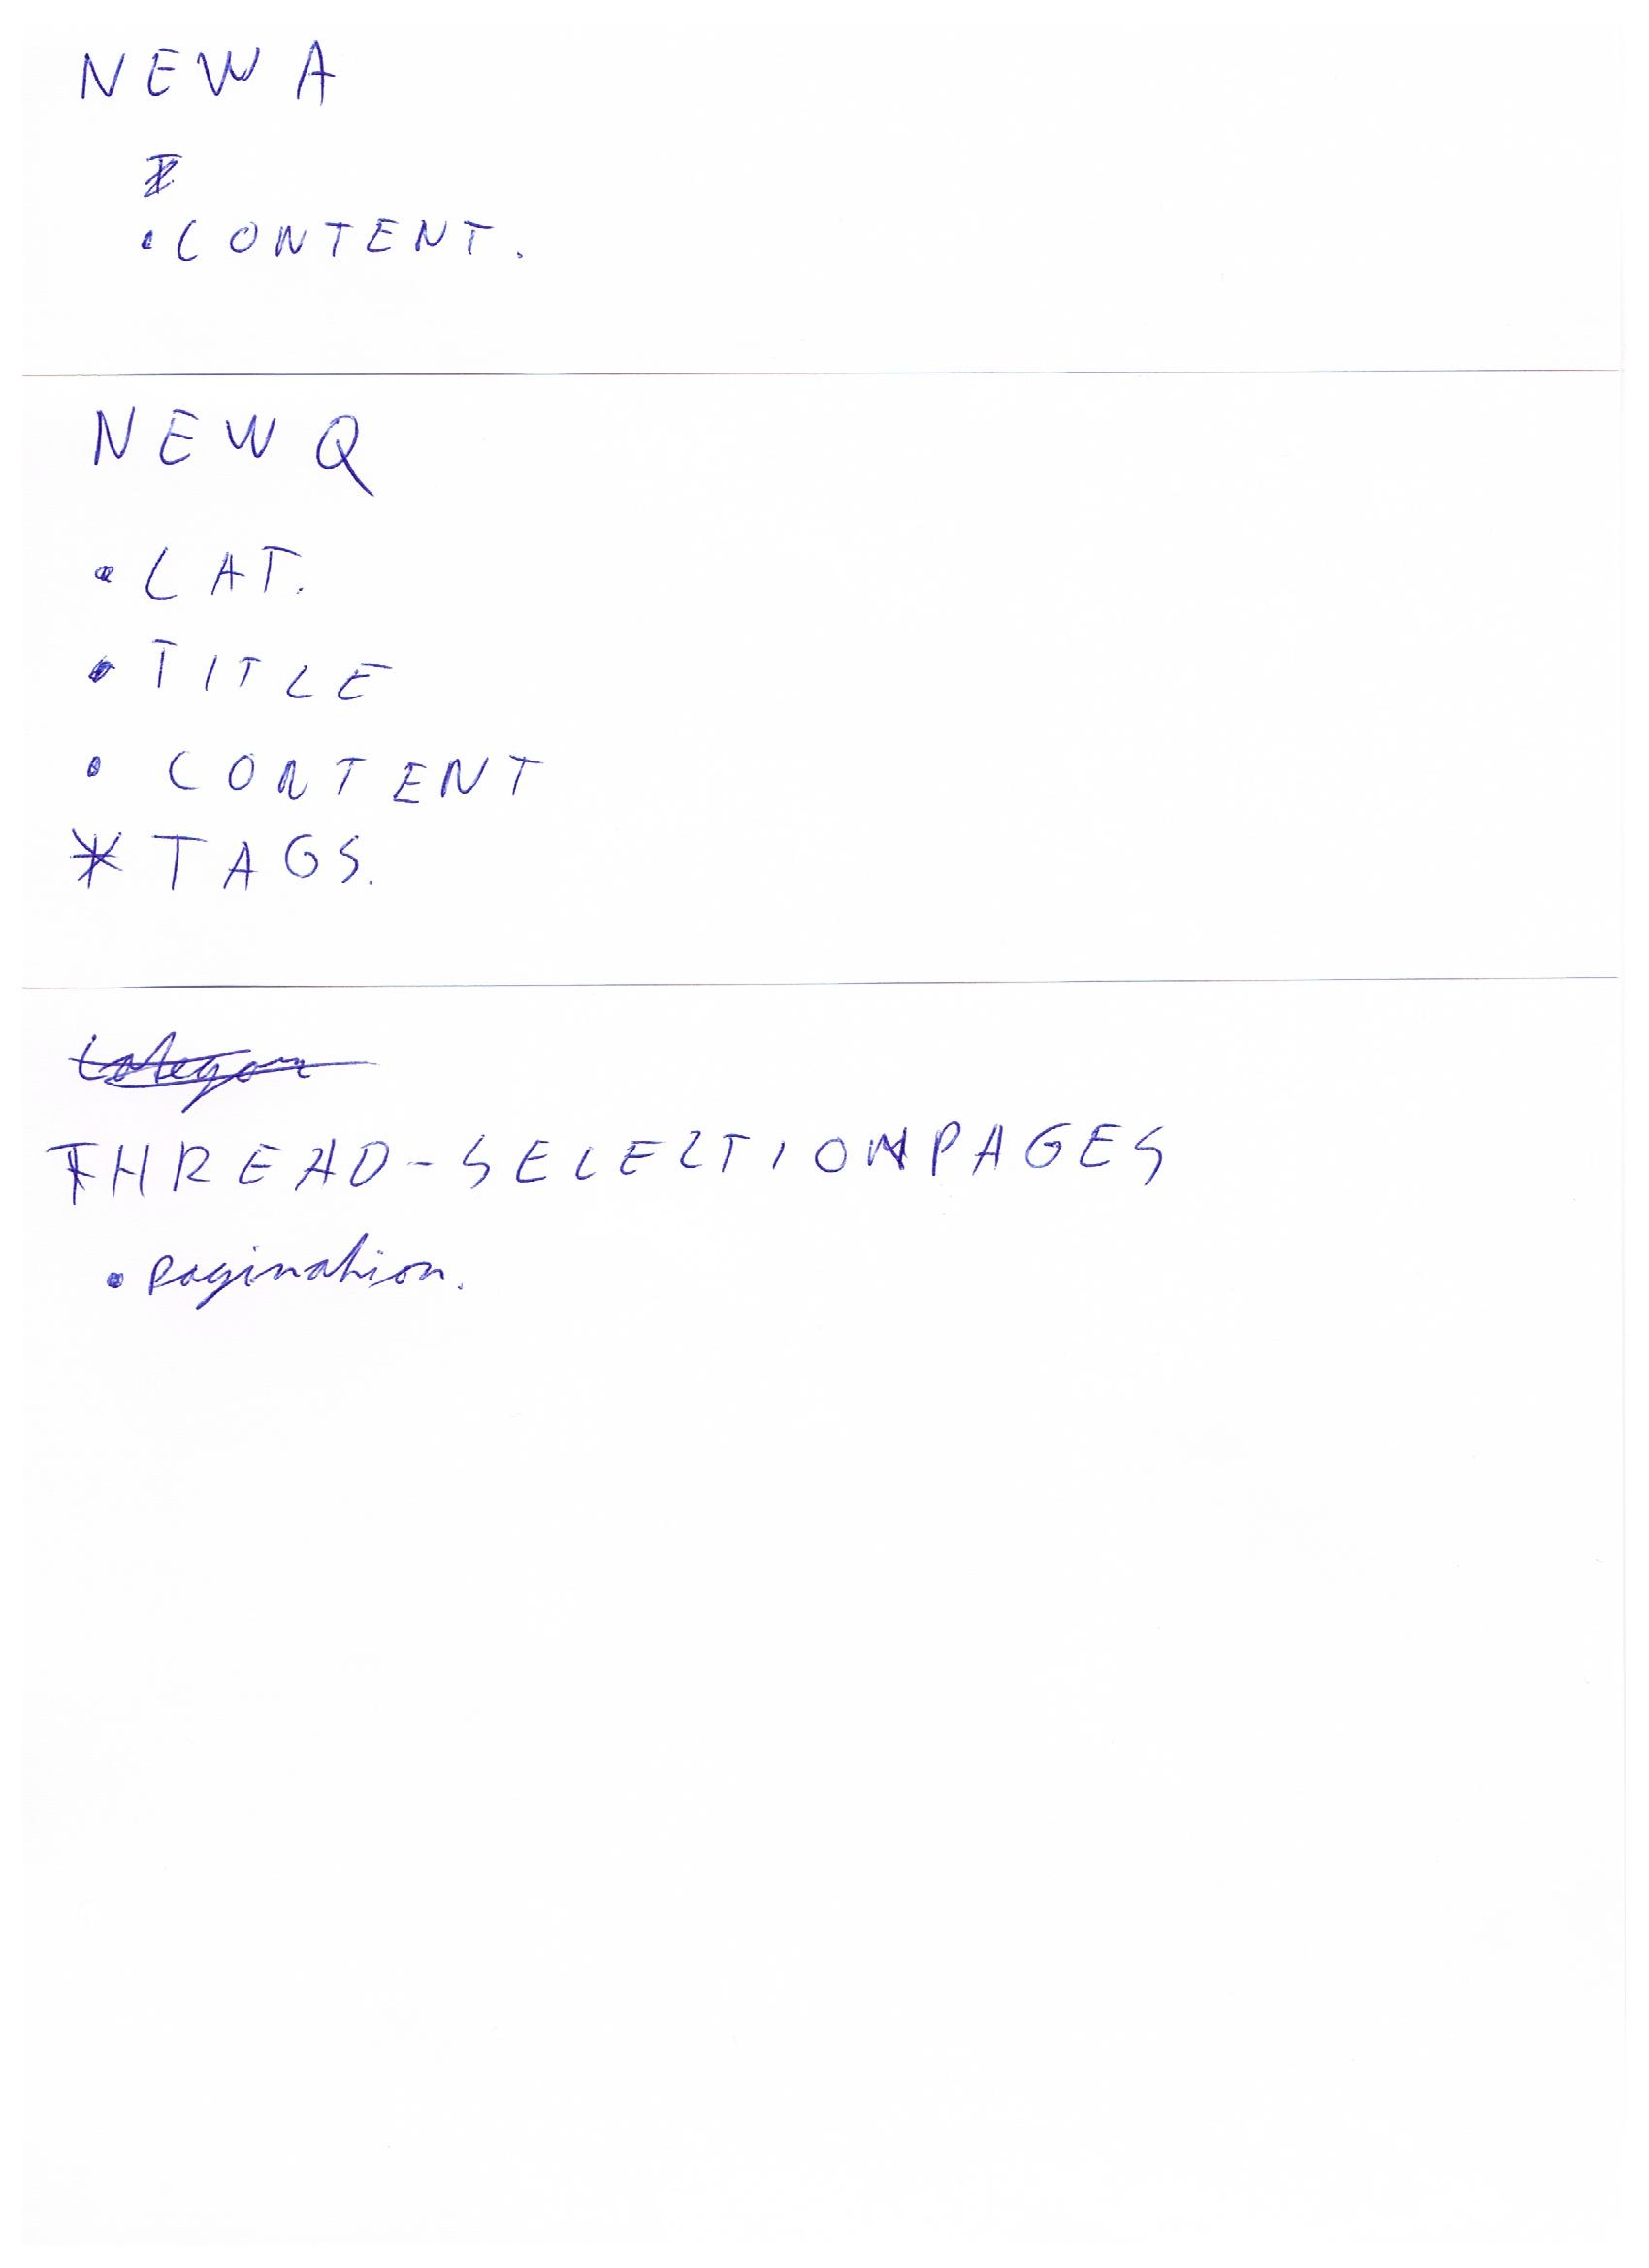 NEW A
• CONTENT.
NEW Q
• CAT.
• TITLE
• CONTENT
* TAGS.
THREAD-SELECTIONPAGES
• pagination.